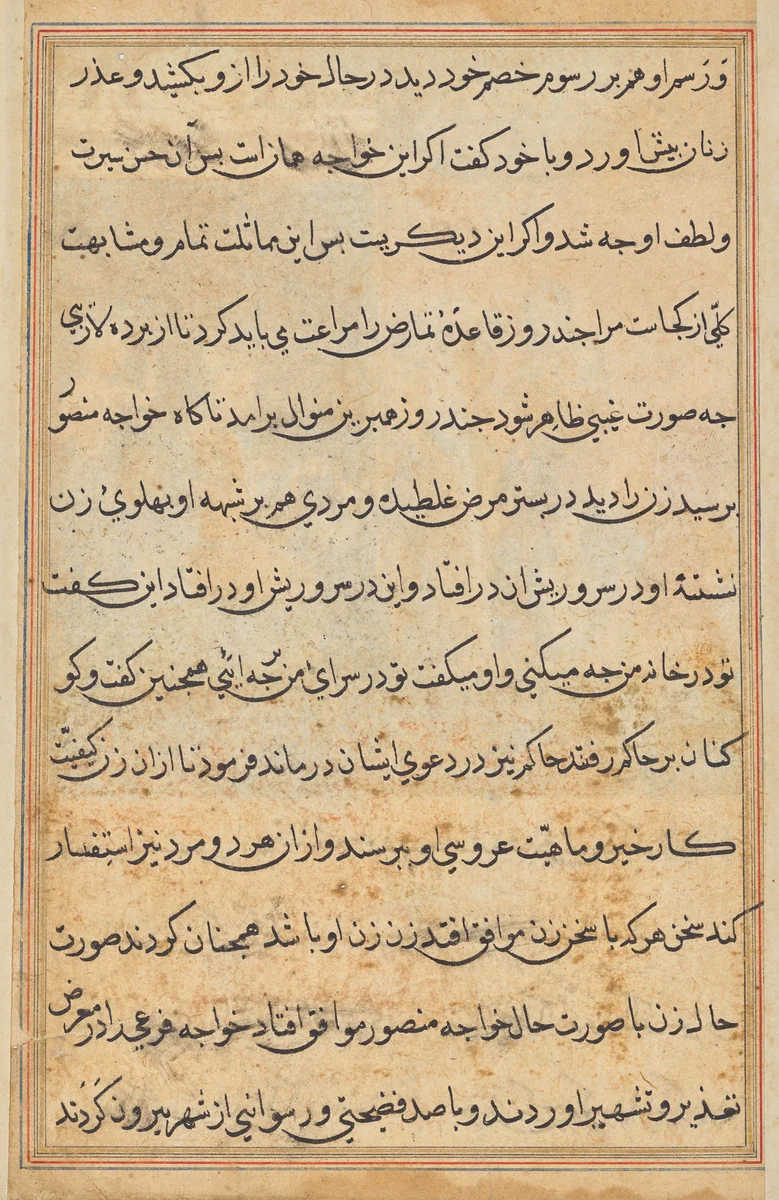 وَرَسم او هم بر رسوم خصم خود دید در حال خود را ازو بکشید و عذر
زنان پیش اورد و با خود کفت اکر این خواجه همان است بس آن حسن سیرت
و لطف او جه شد و اکر این دیکریست بس این مماثلت تمام و مشابهت
کلّی از کجاست مرا جند روز قاعدهٔ تمارض را مراعت می باید کرد تا از برده لاریبی
جه صورت غیبی ظاهر شود جند روز همبرین منوال برامد تا کاه خواجه منصور
برسید زن را دید در بستر مرض غلطیده و مردی هم بر شبهه او بهلوی زن
نشسته او در سر و ریش ان در افتاد و این در سر و ریش او در افتاد این کفت
تو در خانه من جه میکنی و او میکفت تو در سرای من بر جه ایئی همجنین کفت و کو
کنان بر حاکم رفتند حاکم نیز در دعوی ایشان در ماند فرمود تا از ان زن کیفیّت
کار خیر و ماهیّت عروسی او ببرسند و از ان هر دو مرد نیز استفسار
کند سخن هر که با سخن زن موافق افتد زن زن او باشد همجنان کردند صورت
حال زن با صورت حال خواجه منصور موافق افتاد خواجه فرعی را در معرض
تعذیر و تشهیر اوردند و با صد فضیحتی و رسوائیی از شهر بیرون کَردَند